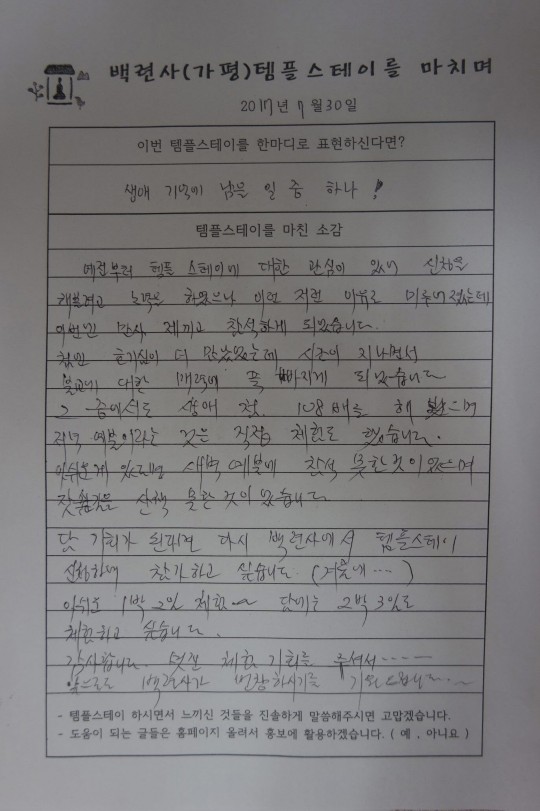 백련사(가평)템플스테이를 마치며
2017년 7월30일
이번 템플스테이를 한마디로 표현하신다면?
생애 기억에 남을 일 중 하나!
템플스테이를 마친 소감
예전부터 템플 스테이에 대한 관심이 있어 신청을
해보려고 노력을 하였으나 이런 저런 이유로 미루어졌는데
이번엔 만사 제끼고 참석하게 되었습니다.
첨엔 호기심이 더 많았었는데 시간이 지나면서
불교에 대한 매력에 푹 빠지게 되었습니다
그 중에서도 생애 첫. 108배를 해 보았으며
저녁 예불이라는 것은 직접 체험도 했습니다.
아쉬운게 있다면 새벽 예불에 참석 못한것이 있으며
잣숲길을 산책 못한 것이 있습니다
담 기회가 된다면 다시 백련사에서 템플스테이
신청하여 참가하고 싶습니다 (겨울에....)
아쉬운 1박2일 체험 담에는 2박3일로
체험하고 싶습니다.
감사합니다. 멋진 체험 기회를 주셔서-----
앞으로도 백련사가 번창하시기를 기원드립니다---
- 템플스테이 하시면서 느끼신 것들을 진솔하게 말씀해주시면 고맙겠습니다.
- 도움이 되는 글들은 홈페이지 올려서 홍보에 활용하겠습니다. ( 예 , 아니요 )